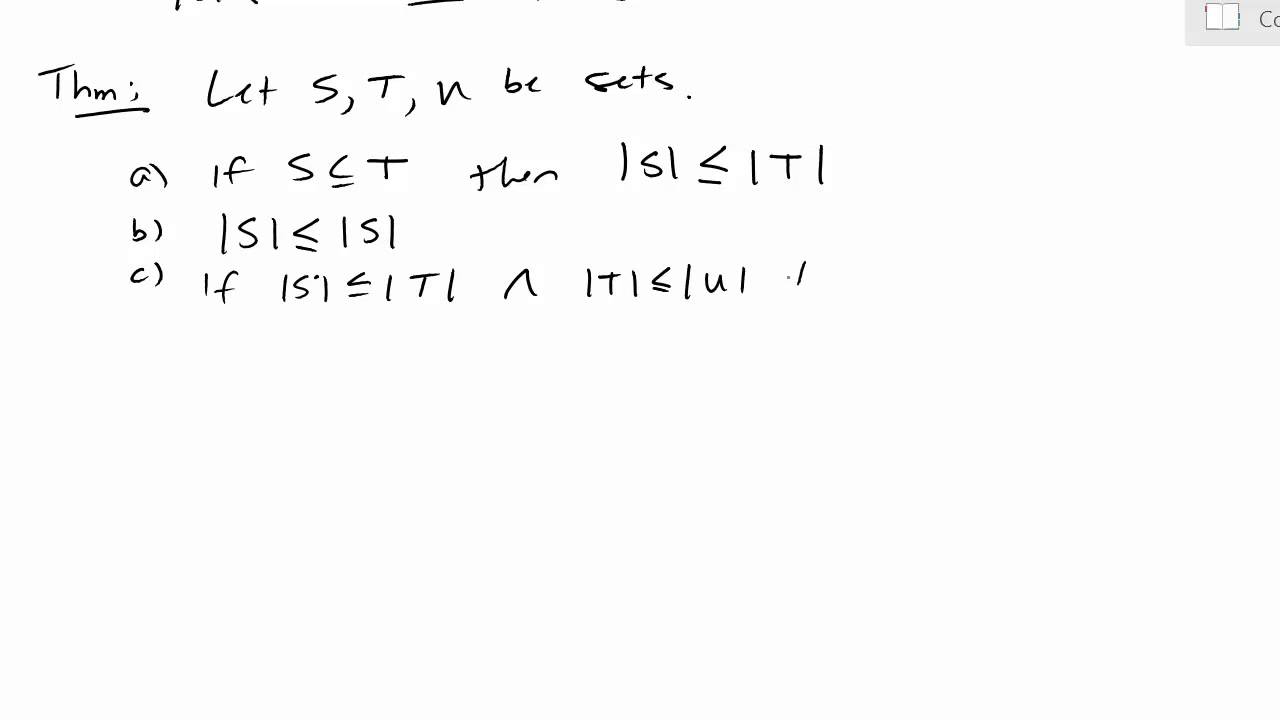 Thm: Let S, T, U be sets.
a) If S ⊆ T then |S| ≤ |T|
b) |S| ≤ |S|
c) If |S| ≤ |T| ∧ |T| ≤ |U|